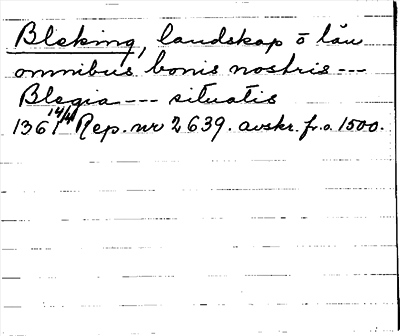 Bleking, landskap o län
omnibus bonis nostris ---
Blegia --- situatis
1361 14/4 Rep. nr 2639. avskr. fr. o. 1500.